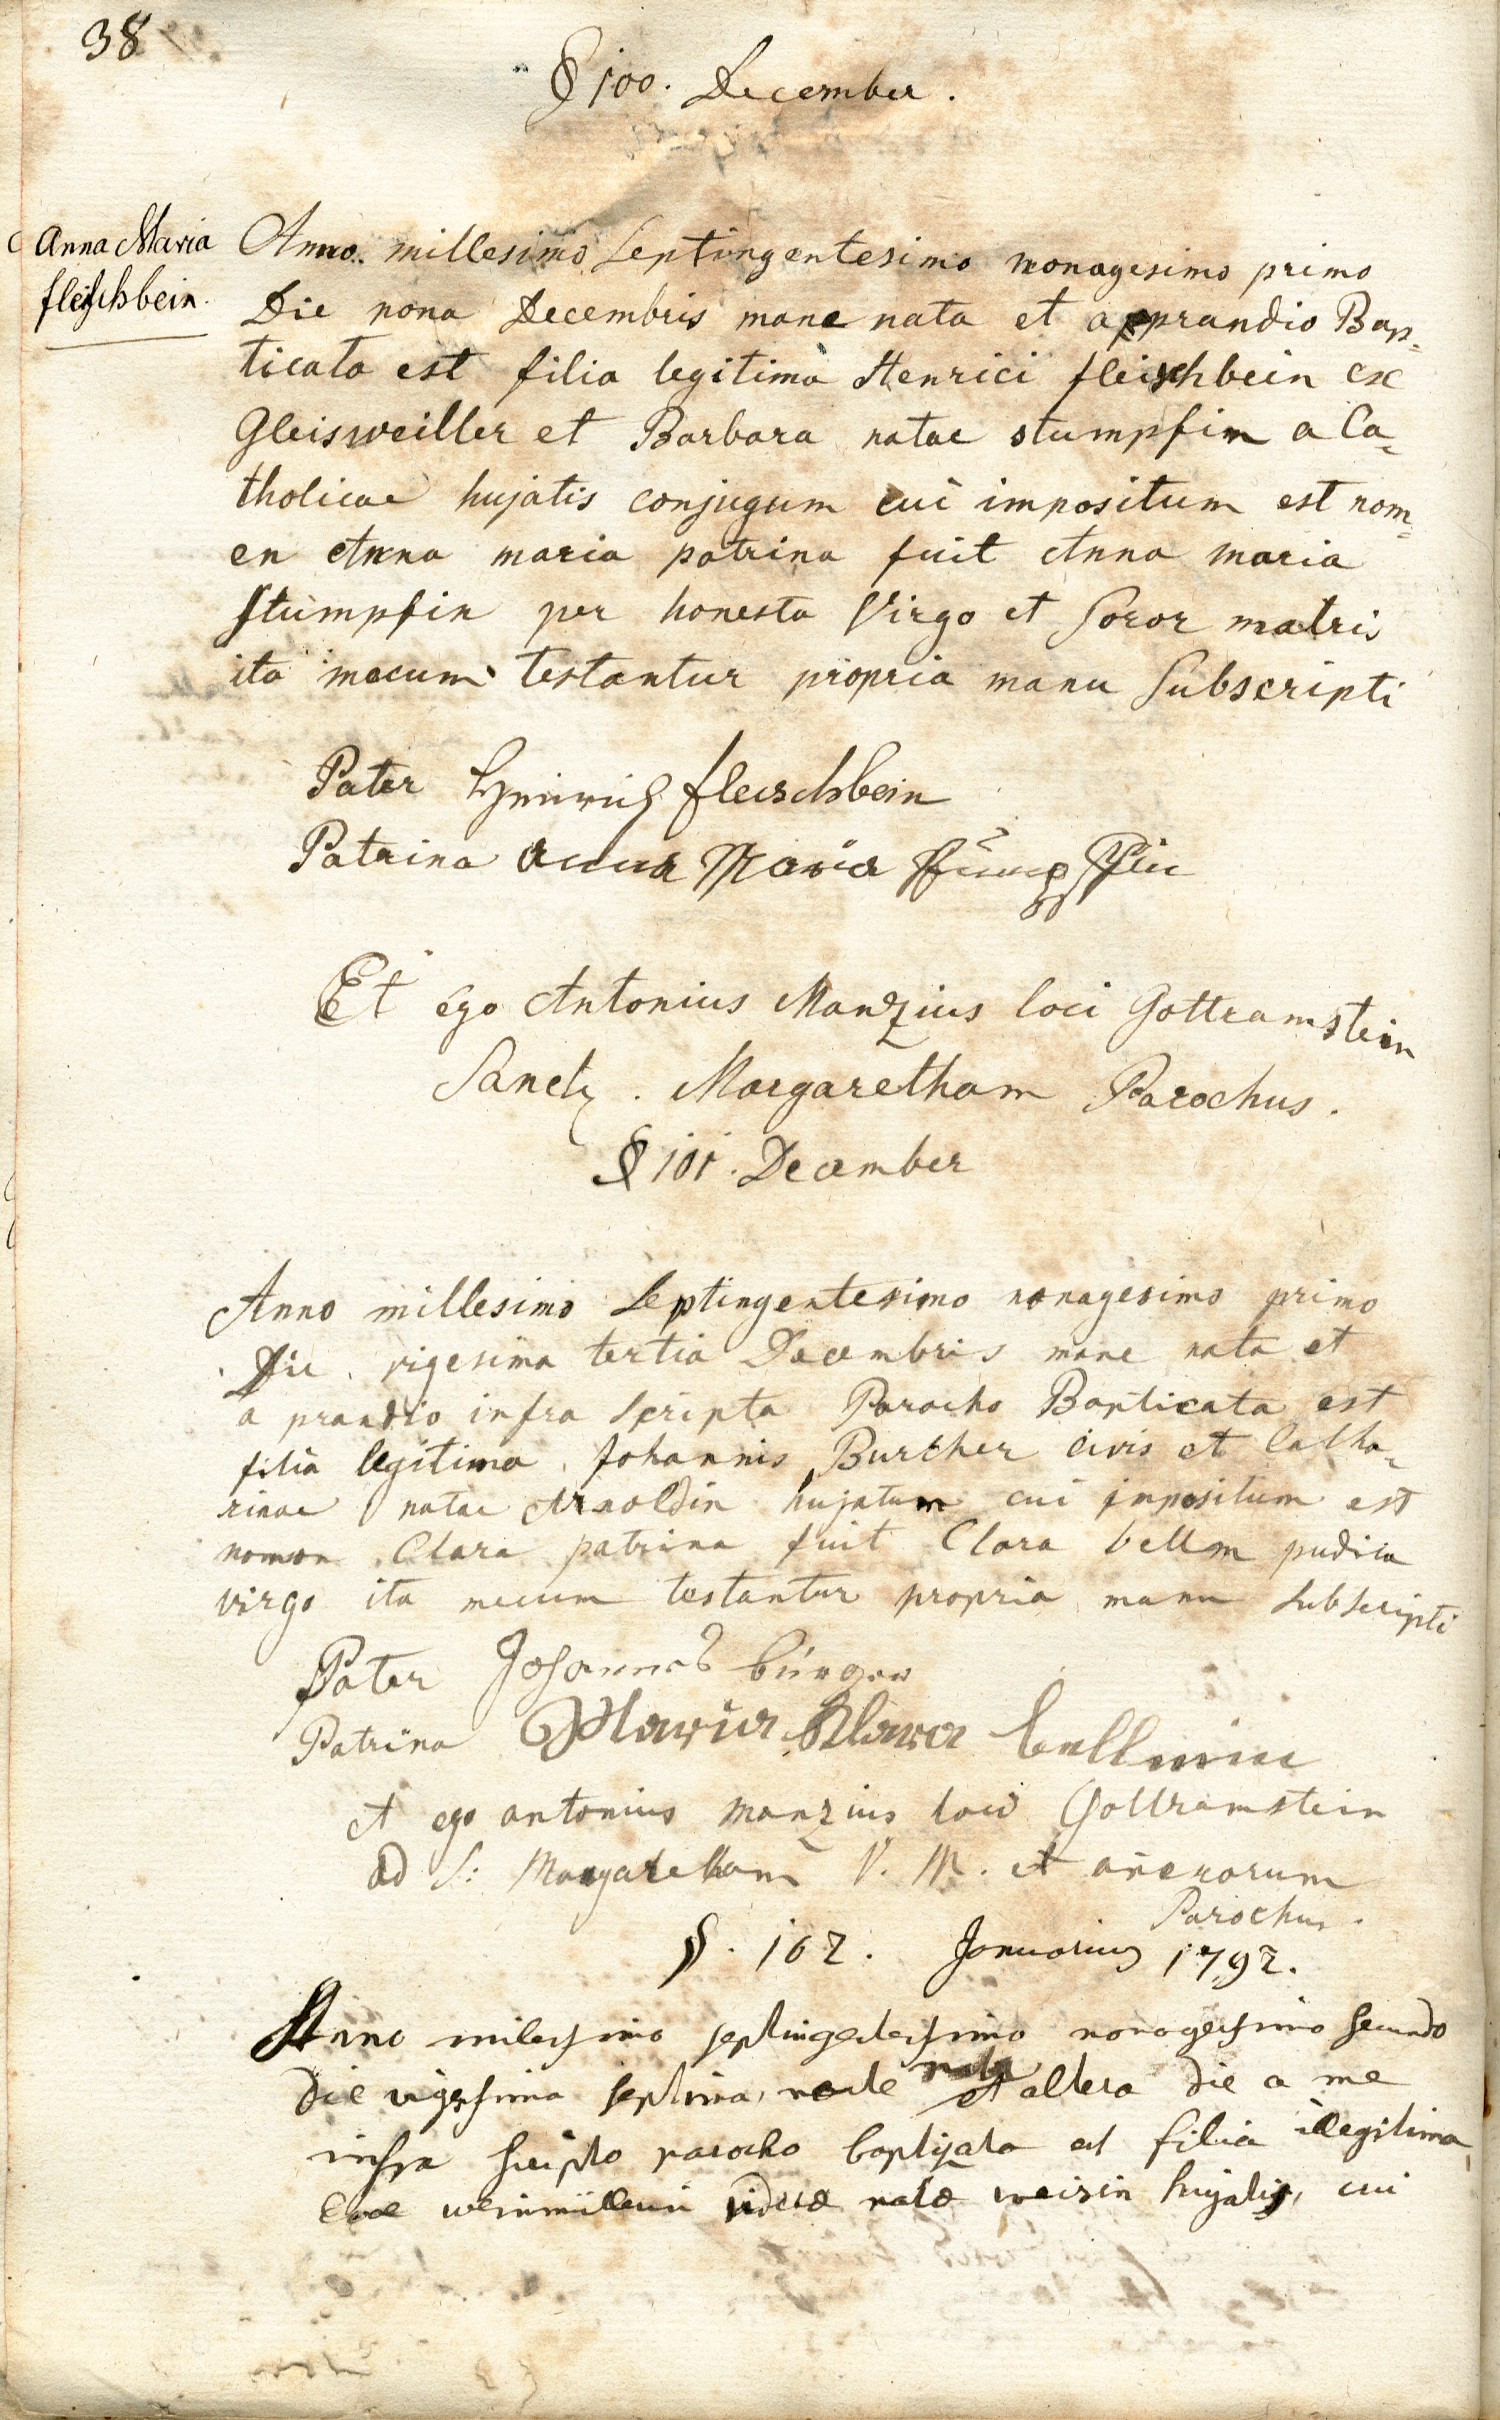 38
§ 100. December.
Anna Maria
fleischbein.
Anno. millesimo Septingentesimo nonagesimo primo
Die nona Decembris mane nata et apprandio Bap=
ticata est filia legitima Henrici fleischbein ex
Gleisweiller et Barbara natae stumpfin a Ca=
tholicae hujatis conjugum cui impositum est nom=
en Anna maria patrina fuit Anna maria
Stumpfin per honesta Virgo et Soror matris
ita mecum testantur propria manu Subscripti
Pater Heinrich fleischbein
Patrina anna Maria Stumpffin
Et ego Antonius Manzius loci Gottramstein
Sanct. Margaretham Parochus.
§ 101. December
Anno millesimo Septingentesimo nonagesimo primo
Die vigesima tertia Decembris mane nata et
a prandio infra Scripta Parocho Bapticata est
filia legitima Johannis Burcher civis et Catha=
rinae natae Arnoldin hujatum cui impositum est
nomen Clara patrina fuit Clara bellm pudica
virgo ita mecum testantur propria manu Subscripti
Pater Johannes bürger
Patrina Maria Klara
et ego antonius Manzius loci Gottramstein
ad S: Margaretham V. M. et añexorum
Parochus.
§. 102. Januarius 1792.
Anno milessimo septingentessimo nonagessimo secundo
die vigessima septima nocte nata et altera die a me
infra scripto parocho baptizata est filia illegitima
Evae weinmüllerin viduae natae weisin hujatis, cui